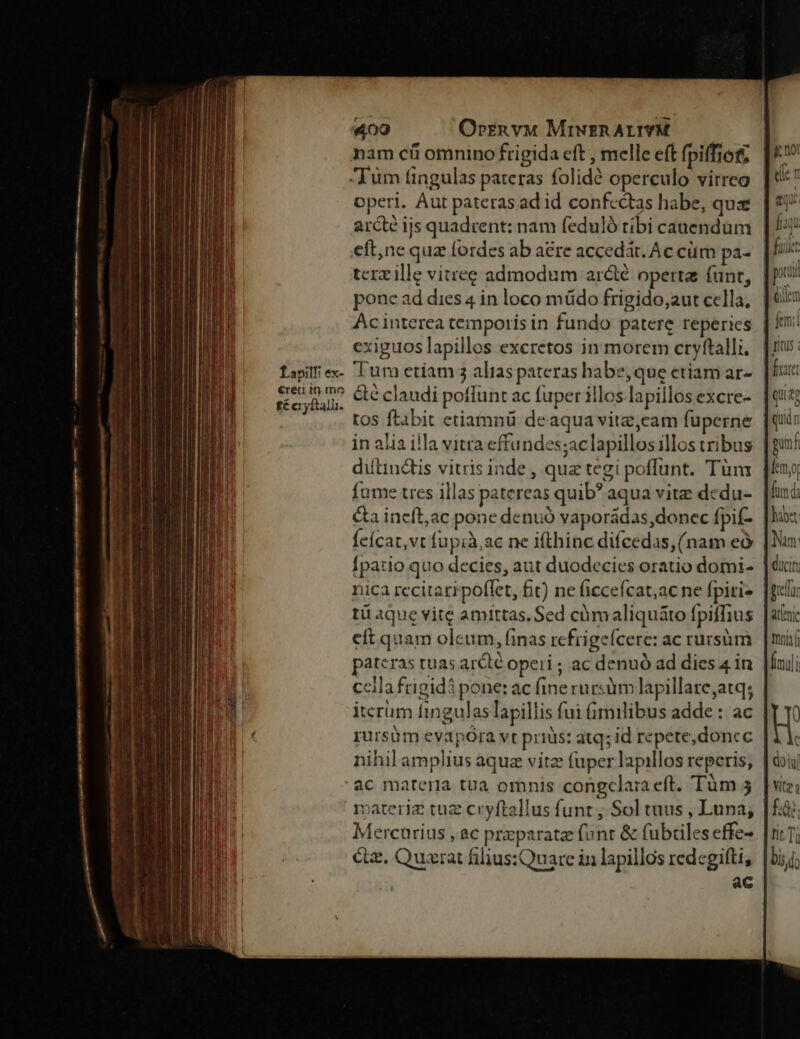 400 OPERVM MINERALIVM
nam cũ omnino frigida eſt, melle eſt ſpiſſior,
Tùm ſingulas pateras ſolidè operculo vitreo
operi. Aut pateras ad id confectas habe, quæ
arctè ijs quadrent: nam ſedulò tibi cauendum
eſt, ne quæ ſordes ab aëre accedãt. Ac cùm pa-
teræ ille vitreę admodum arctè opertæ ſunt,
pone ad dies 4 in loco mũdo frigido, aut cella.
Ac interea temporis in fundo paterę reperies
exiguos lapillos excretos in morem cryſtalli.
Lapilli ex-
creti in mo
rẽ cryſtalli.
Tum etiam 3 alias pateras habe, que etiam ar-
ctè claudi poſſunt ac ſuper illos lapillos excre-
tos ſtabit etiamnũ de aqua vitæ, eam ſuperne
in alia illa vitra effundes; ac lapillos illos tribus
diſtinctis vitris inde, quæ tegi poſſunt. Tùm
ſume tres illas patereas quib' aqua vitæ dedu-
cta ineſt, ac pone denuò vaporãdas, donec ſpiſ-
ſeſcat, vt ſuprà, ac ne iſthinc diſcedas, (nam eò
ſpatio quo decies, aut duodecies oratio domi-
nica recitari poſſet, fit) ne ſicceſcat, ac ne ſpiri-
tũ aque vitę amittas. Sed cùm aliquãto ſpiſſius
eſt quam oleum, ſinas refrigeſcere: ac rursùm
pateras tuas arctè operi; ac denuò ad dies 4 in
cella frigidã pone: ac ſine rursùm lapillare, atq;
iterùm ſingulas lapillis ſui ſimilibus adde: ac
rursùm evapora vt priùs: atq; id repete, donec
nihil amplius aquæ vitæ ſuper lapillos reperis,
ac materia tua omnis congelara eſt. Tùm 3
materiæ tuæ cryſtallus ſunt, Sol tuus, Luna,
Mercurius, ac præparatæ ſunt & ſubtiles effe-
ctæ. Quærat filius: Quare in lapillos redegiſti,
ac